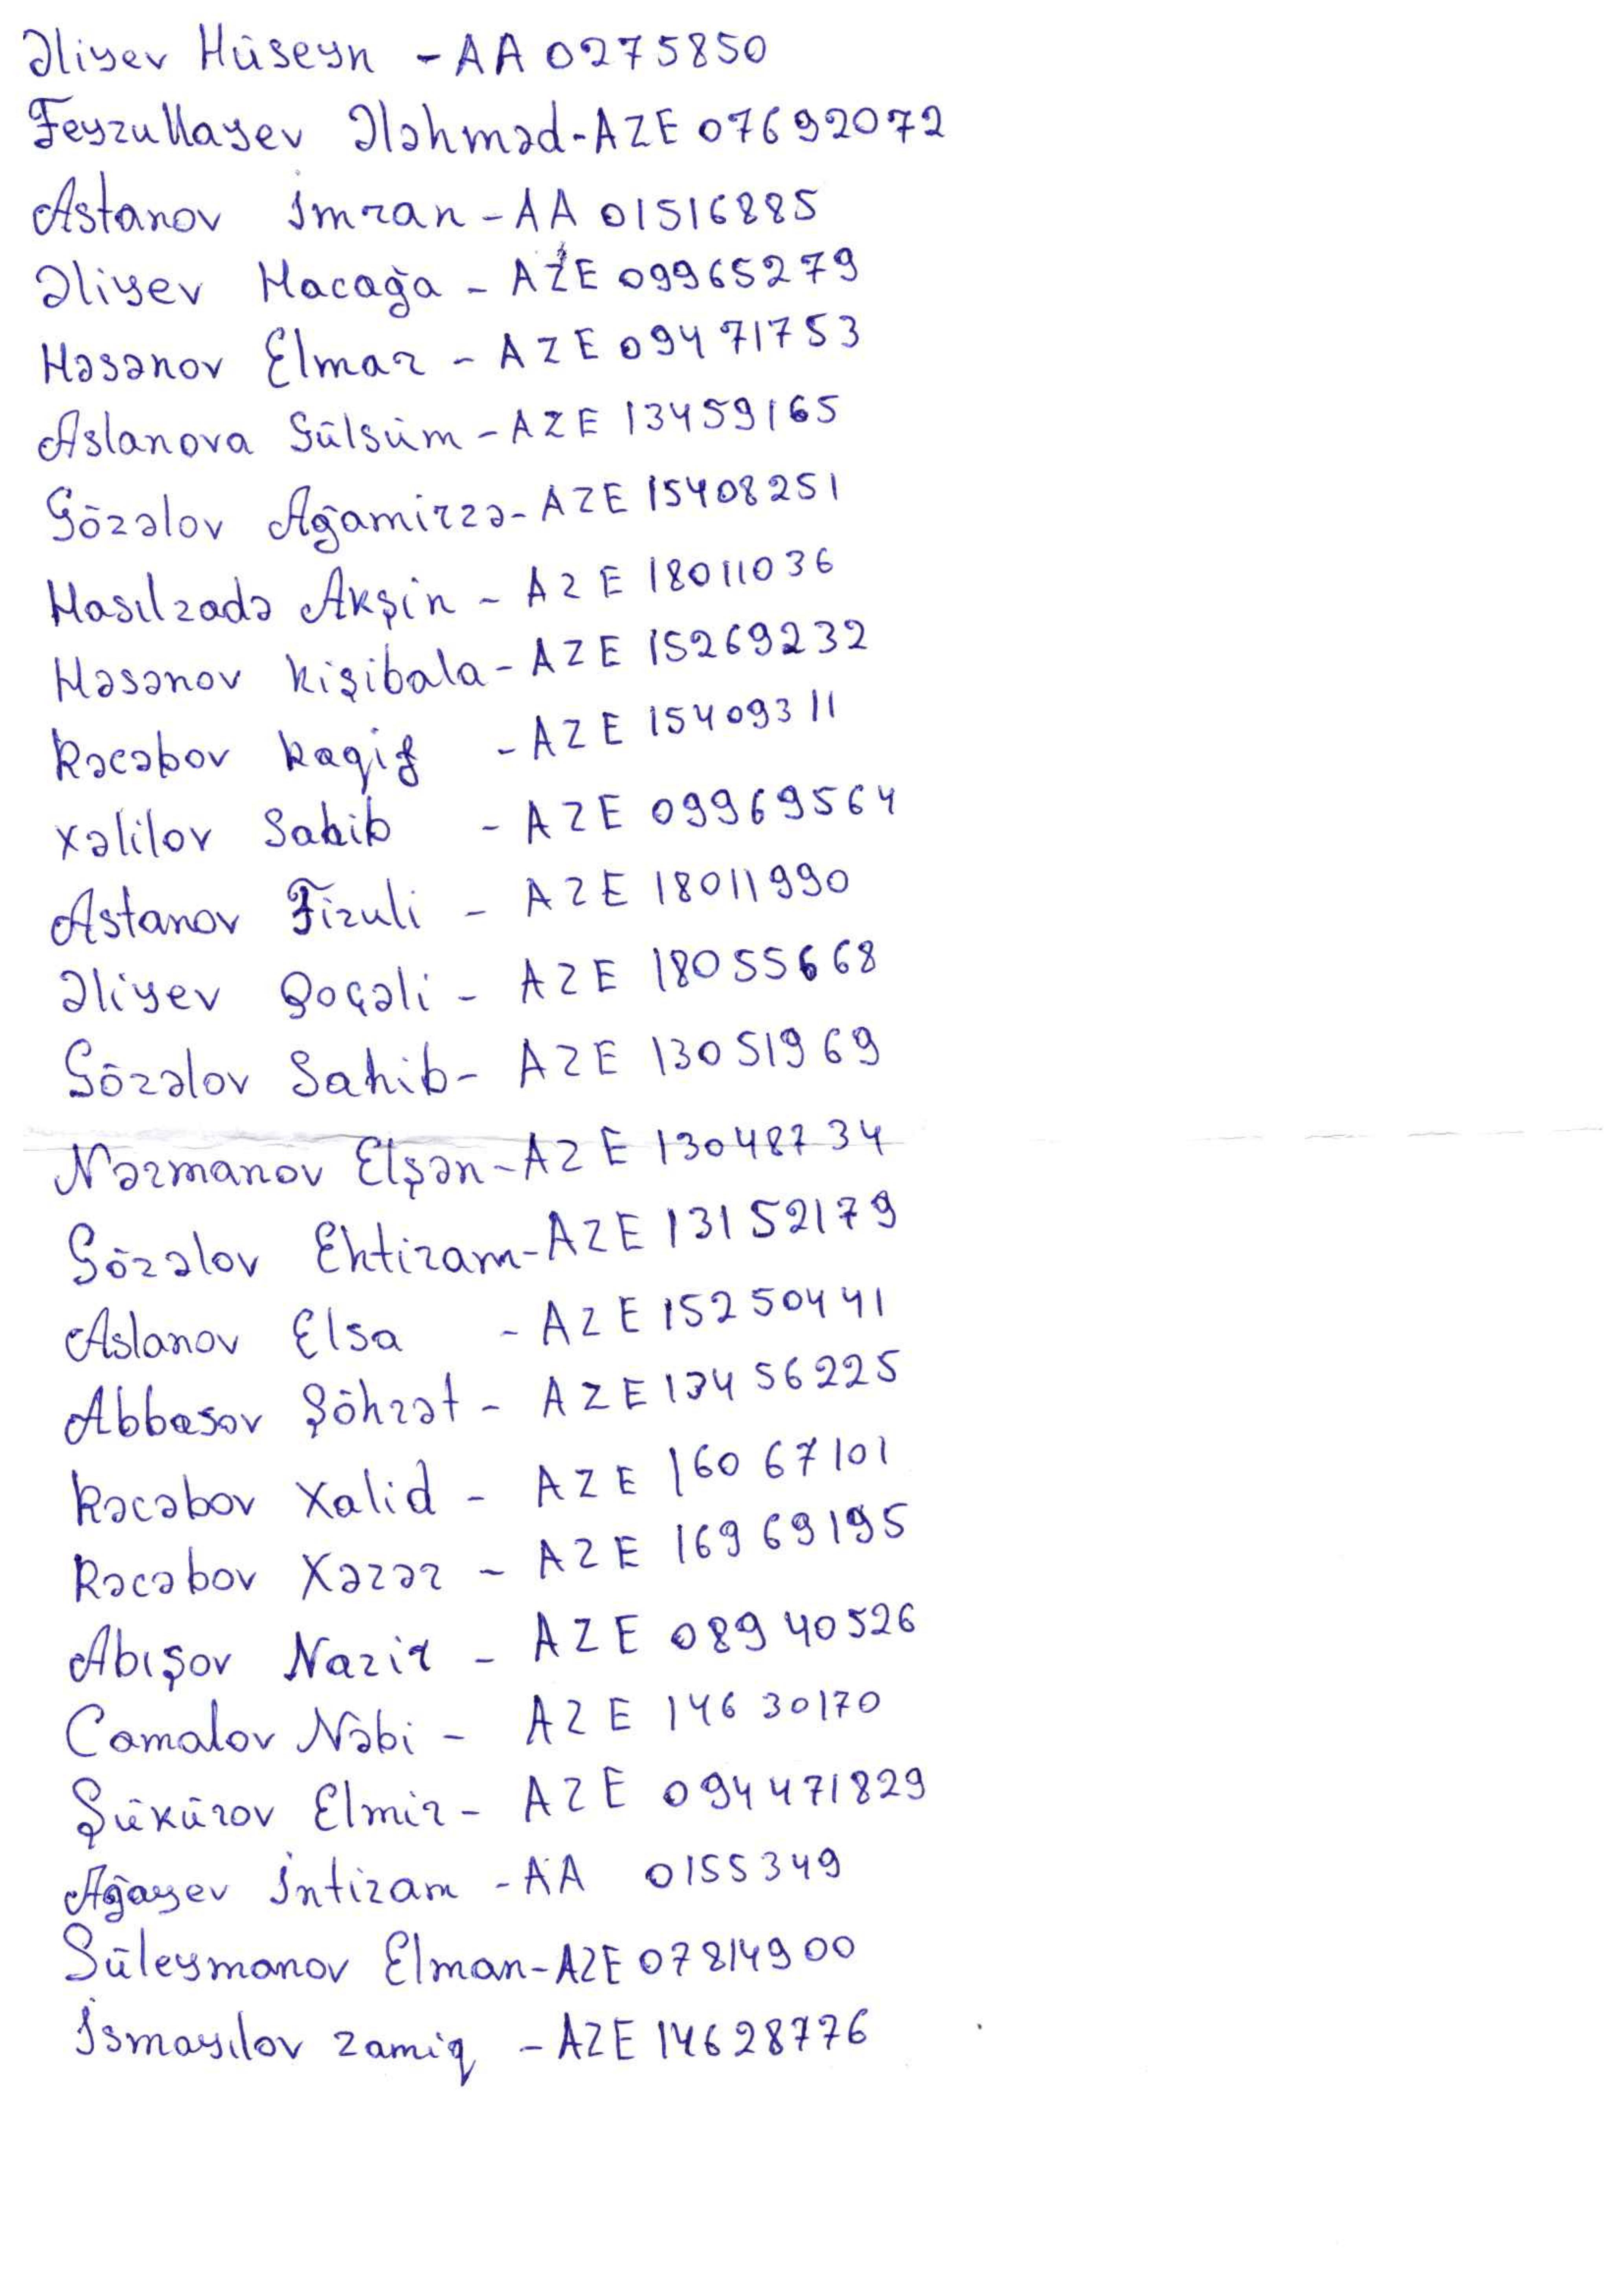 Əliyev Hüseyn - AA 0275850
Feyzullayev Ələhməd - AZE 07692072
Astanov İmran - AA 01516885
Əliyev Hacağa - AZE 09965279
Həsənov Elmar - AZE 09471753
Aslanova Gülsüm - AZE 13459165
Gözəlov Ağamirzə - AZE 15408251
Hasılzadə Akşin - AZE 18011036
Həsənov Kişibala - AZE 15269232
Rəcəbov Raqif - AZE 15409311
Xəlilov Sahib - AZE 09969564
Astanov Fizuli - AZE 18011990
Əliyev Qoçəli - AZE 18055668
Gözəlov Sahib - AZE 13051969
Nərmanov Elşən - AZE 13048734
Gözəlov Ehtiram - AZE 13152179
Aslanov Elsa - AZE 15250441
Abbasov Şöhrət - AZE 13456225
Rəcəbov Xalid - AZE 16067101
Rəcəbov Xəzər - AZE 16969195
Abışov Nazir - AZE 08940526
Camalov Nəbi - AZE 14630170
Şükürov Elmir - AZE 094471829
Ağayev İntizam - AA 0155349
Süleymanov Elman - AZE 07814900
İsmayılov Zamiq - AZE 14628776